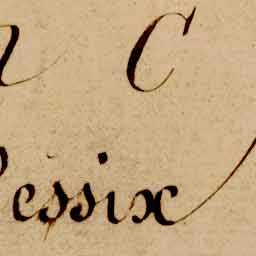 C
essix